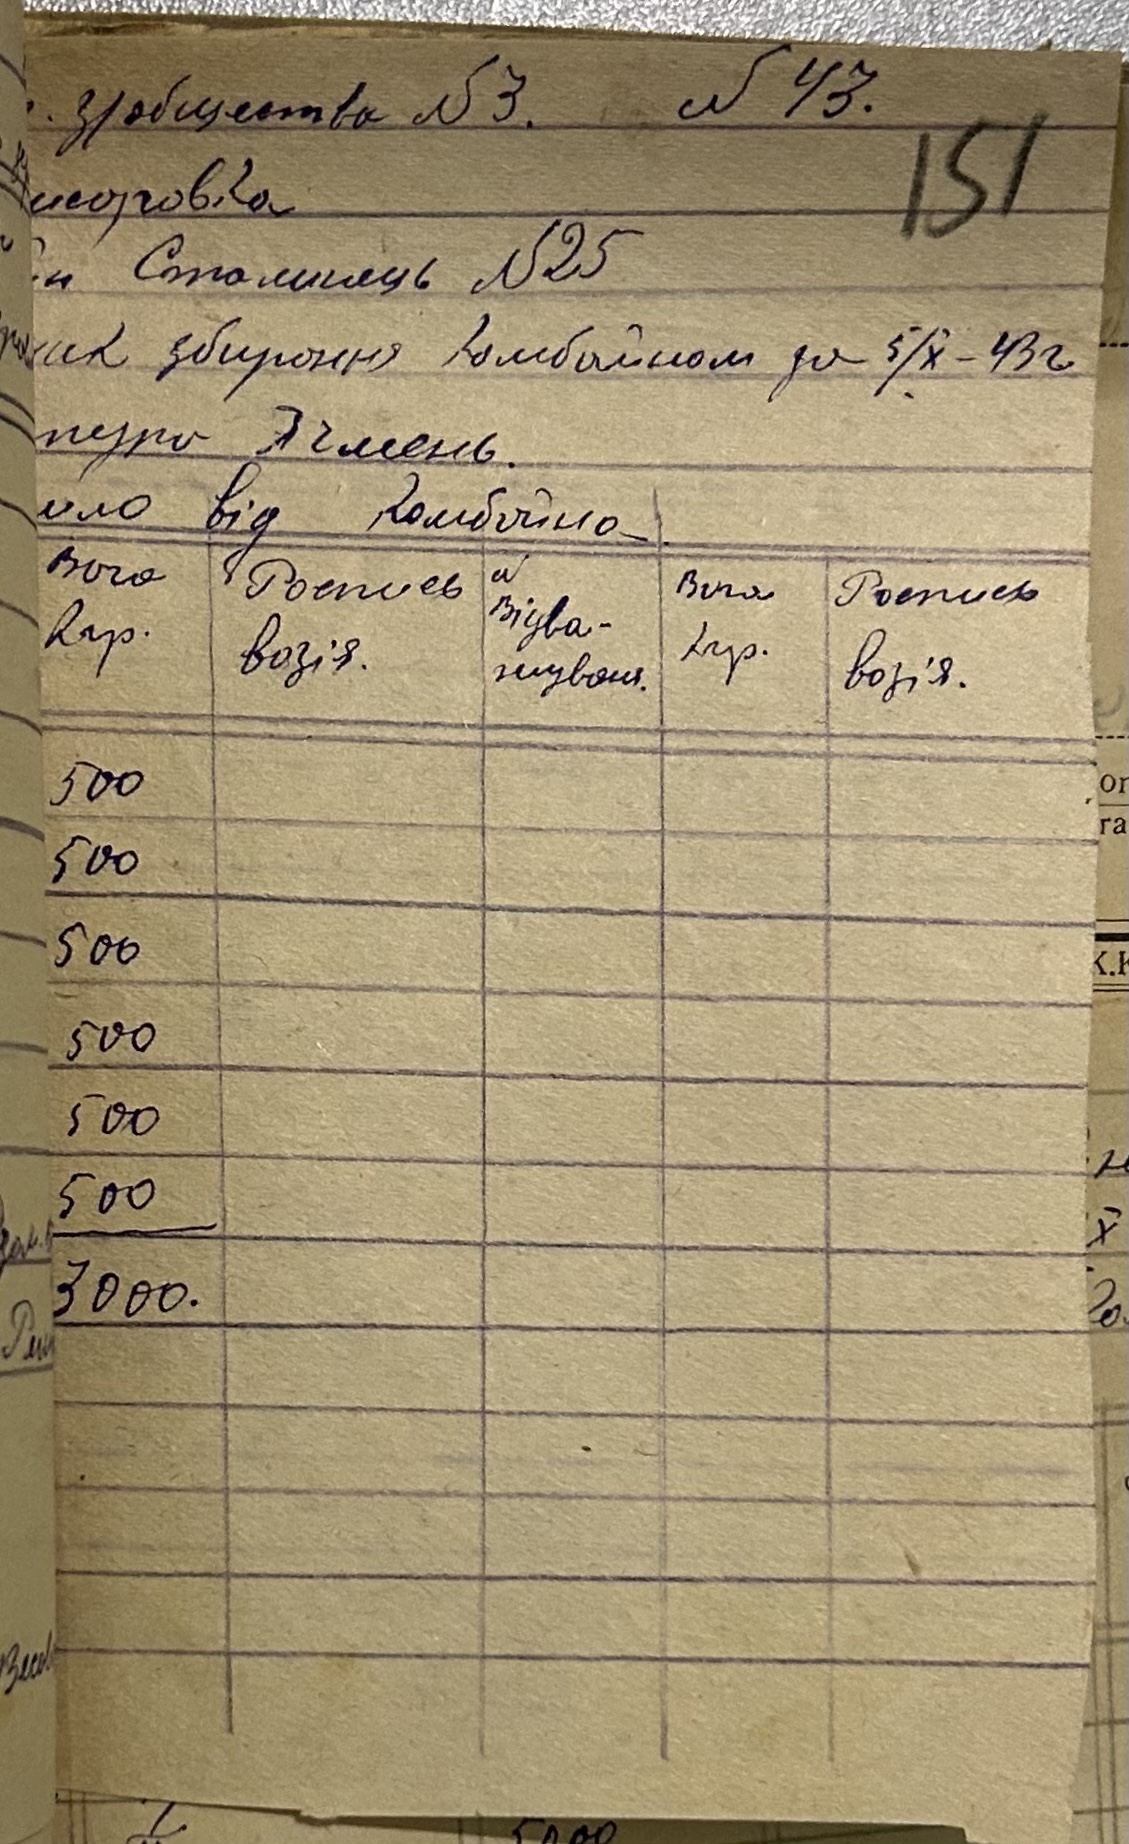 . зробщества №3. № 43.
151
исоровка
Сталинець №25
ик збирання комбайном за 5/X-43г
Ячмень.
ило від комбайна.
Вага кгр. Роспись возія. № Відва-жуваня. Вага кгр. Роспись возія.
500
500
500
500
500
500
3000.